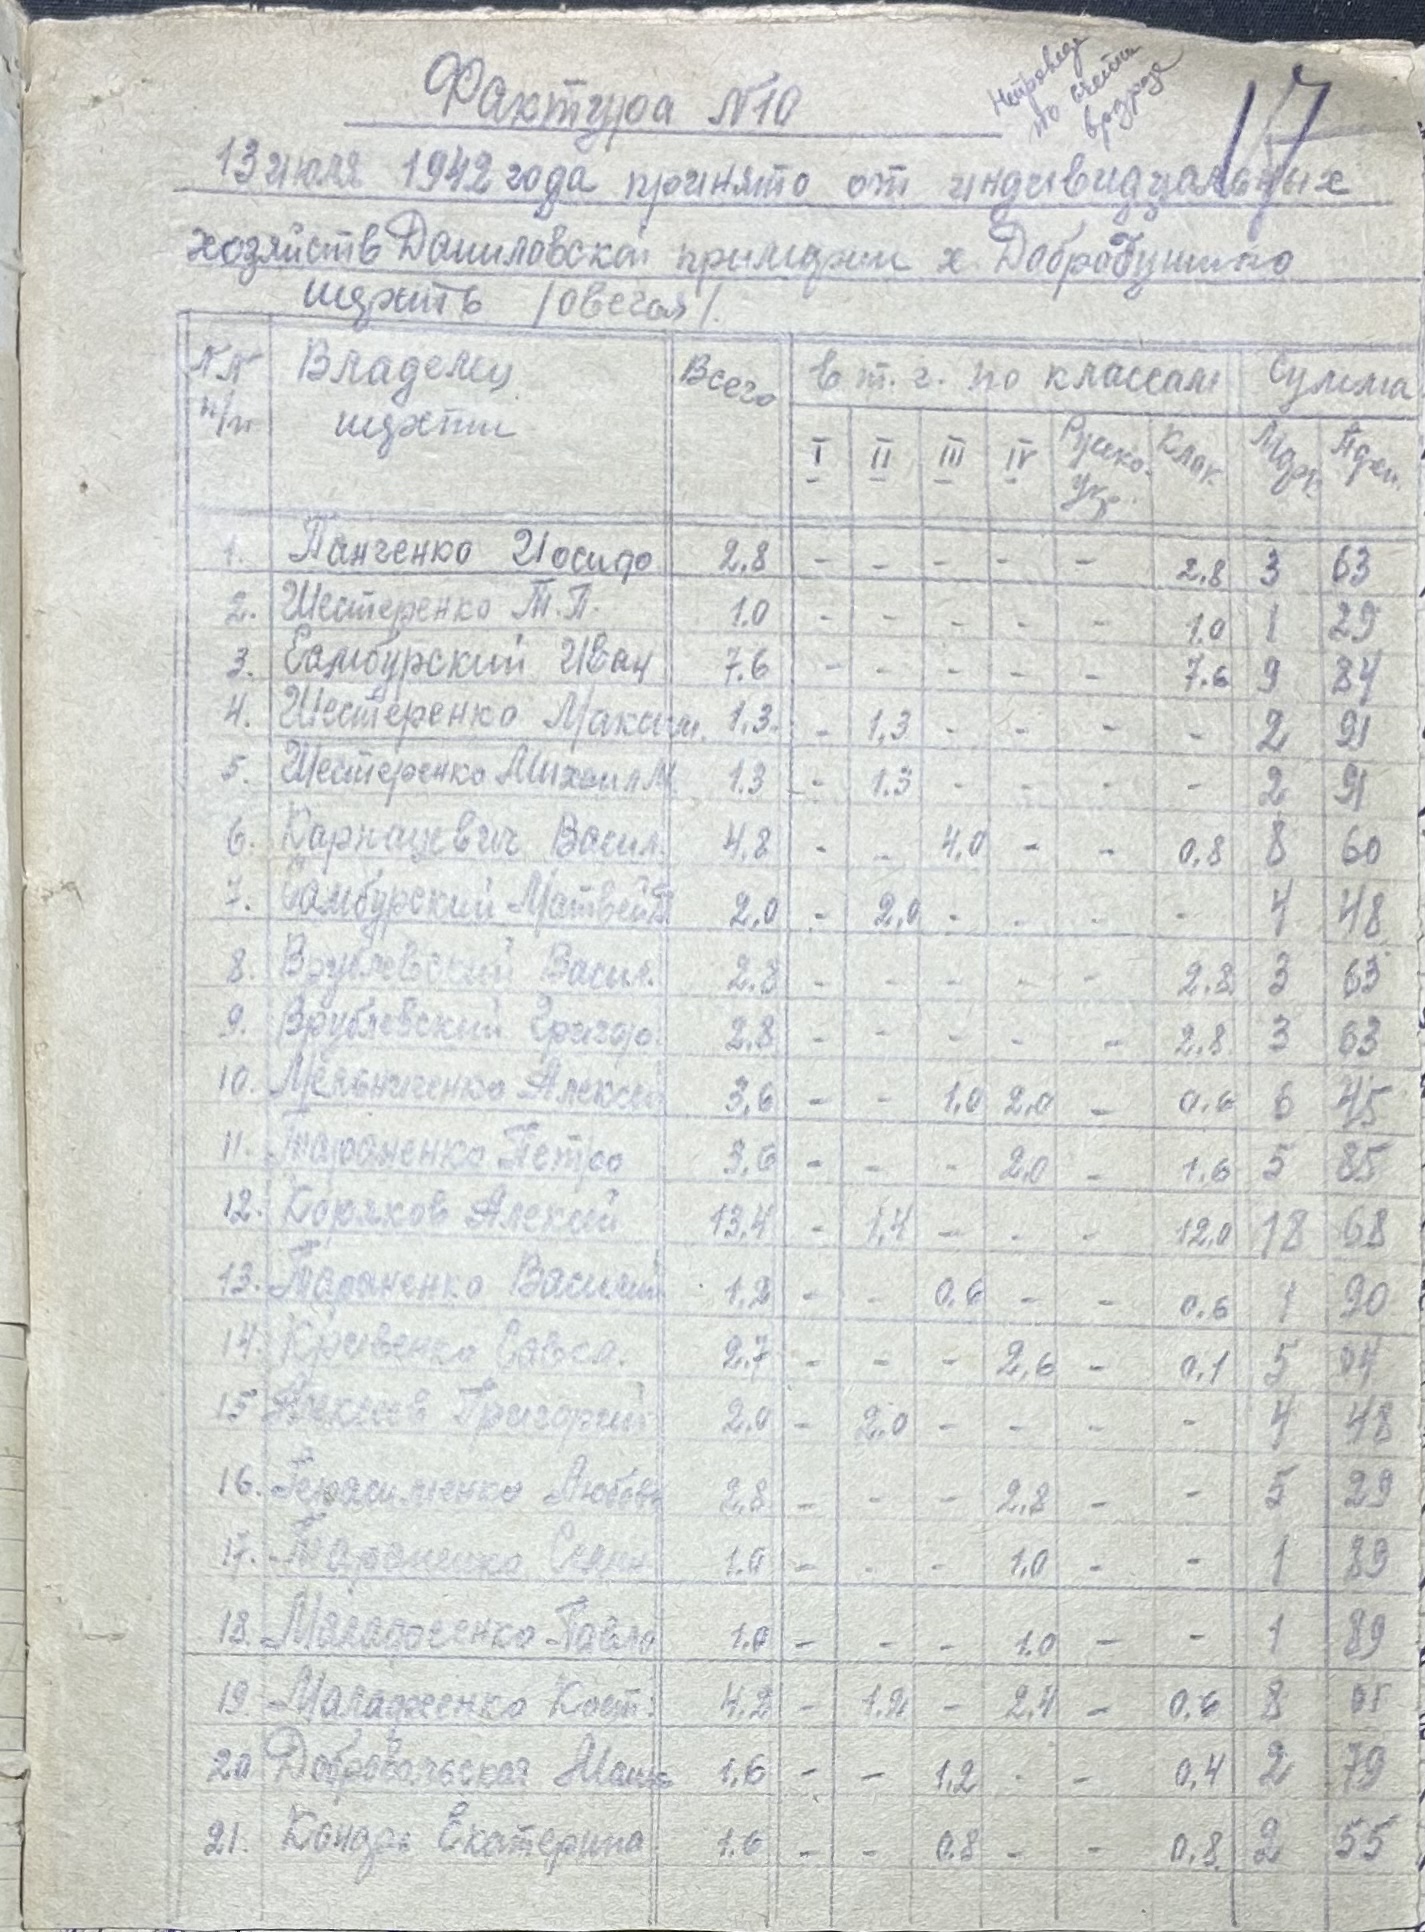 Фактура №10
17
13 июля 1942 года принято от индивидуальных
хозяйств Даниловской примарии х. Добробутного
шерсть /овечая/.
№№ п/п Владелец шерсти Всего в т. ч. по классам Сумма
I II III IV Клок Марк. Пфен.
1. Панченко Иосиф 2,8 - - - - - 2,8 3 63
2. Шестеренко Т.П. 1.0 - - - - - 1.0 1 29
3. Самбурский Иван 7.6 - - - - - 7.6 9 84
4. Шестеренко Максим. 1.3 - 1.3 - - - - 2 91
5. Шестеренко Михаил М. 1.3 - 1.3 - - - - 2 91
6. Карнацевич Васил. 4,8 - - 4,0 - - 0,8 8 60
7. Самбурский Матвей 2,0 - 2,0 - - - - 4 48
8. Врублевский Васил. 2.8 - - - - - 2.8 3 63
9. Врублевский Григор. 2.8 - - - - - 2.8 3 63
10. Мельниченко Алексей 3,6 - - 1,0 2,0 - 0,6 6 45
11. Тараненко Петро 3,6 - - - 2,0 - 1,6 5 85
12. Коряков Алексей 13,4 - 1,4 - - - 12,0 18 68
13. Тараненко Василий 1,2 - - 0.6 - - 0.6 1 90
14. Кривенко Савел. 2,7 - - - 2,6 - 0,1 5 04
15 Алексеев Григорий 2.0 - 2.0 - - - - 4 48
16. Герасименко Любовь 2,8 - - - 2,8 - - 5 29
17. Тараненко 1.0 - - - 1.0 - - 1 89
18. Павло 1.0 - - - 1.0 - - 1 89
19. Кост. 4,2 - 1.2 - 2,4 - 0.6 8
20 Добровольская 1,6 - - 1,2 - - 0,4 2 79
21. Екатерина 1.6 - - 0.8 - - 0,8 2 55